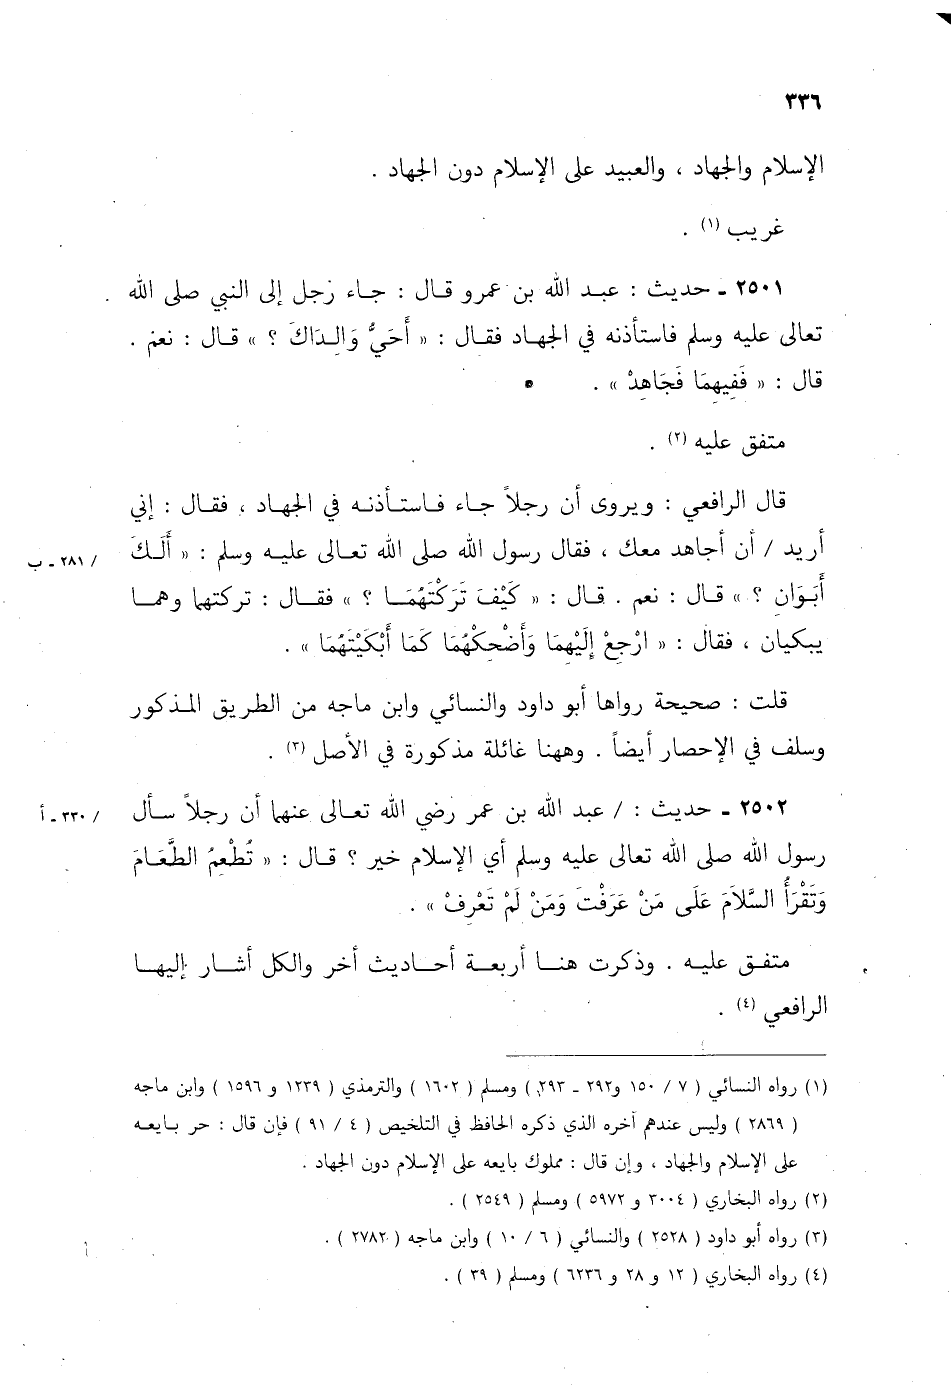 ٣٣٦
الإسلام والجهاد ، والعبيد على الإسلام دون الجهاد .
غريب (١) .
٢٥٠١ ـ حديث : عبد الله بن عمرو قال : جاء رجل إلى النبي صلى الله
تعالى عليه وسلم فاستأذنه في الجهاد فقال : « أَحَيٌّ وَالِدَاكَ ؟ » قال : نعم .
قال : « فَفِيهِمَا فَجَاهِدْ » .
متفق عليه (٢) .
قال الرافعي : ويروى أن رجلاً جاء فاستأذنه في الجهاد ، فقال : إني
أريد / أن أجاهد معك ، فقال رسول الله صلى الله تعالى عليه وسلم : « أَلَكَ / ٢٨١ ـ ب
أَبَوَانِ ؟ » قال : نعم . قال : « كَيْفَ تَرَكْتَهُمَا ؟ » فقال : تركتهما وهما
يبكيان ، فقال : « ارْجِعْ إِلَيْهِمَا وَأَضْحِكْهُمَا كَمَا أَبْكَيْتَهُمَا » .
قلت : صحيحة رواها أبو داود والنسائي وابن ماجه من الطريق المذكور
وسلف في الإحصار أيضاً . وههنا غائلة مذكورة في الأصل (٣) .
٢٥٠٢ ـ حديث : / عبد الله بن عمر رضي الله تعالى عنهما أن رجلاً سأل / ٣٣٠ ـ أ
رسول الله صلى الله تعالى عليه وسلم أي الإسلام خير ؟ قال : « تُطْعِمُ الطَّعَامَ
وَتَقْرَأُ السَّلاَمَ عَلَى مَنْ عَرَفْتَ وَمَنْ لَمْ تَعْرِفْ » .
متفق عليه . وذكرت هنا أربعة أحاديث أخر والكل أشار إليها
الرافعي (٤) .
(١) رواه النسائي ( ٧ / ١٥٠ و٢٩٢ ـ ٢٩٣ ) ومسلم ( ١٦٠٢ ) والترمذي ( ١٢٣٩ و ١٥٩٦ ) وابن ماجه
( ٢٨٦٩ ) وليس عندهم آخره الذي ذكره الحافظ في التلخيص ( ٤ / ٩١ ) فإن قال : حر بايعه
على الإسلام والجهاد ، وإن قال : مملوك بايعه على الإسلام دون الجهاد .
(٢) رواه البخاري ( ٣٠٠٤ و ٥٩٧٢ ) ومسلم ( ٢٥٤٩ ) .
(٣) رواه أبو داود ( ٢٥٢٨ ) والنسائي ( ٦ / ١٠ ) وابن ماجه ( ٢٧٨٢ ) .
(٤) رواه البخاري ( ١٢ و ٢٨ و ٦٢٣٦ ) ومسلم ( ٣٩ ) .